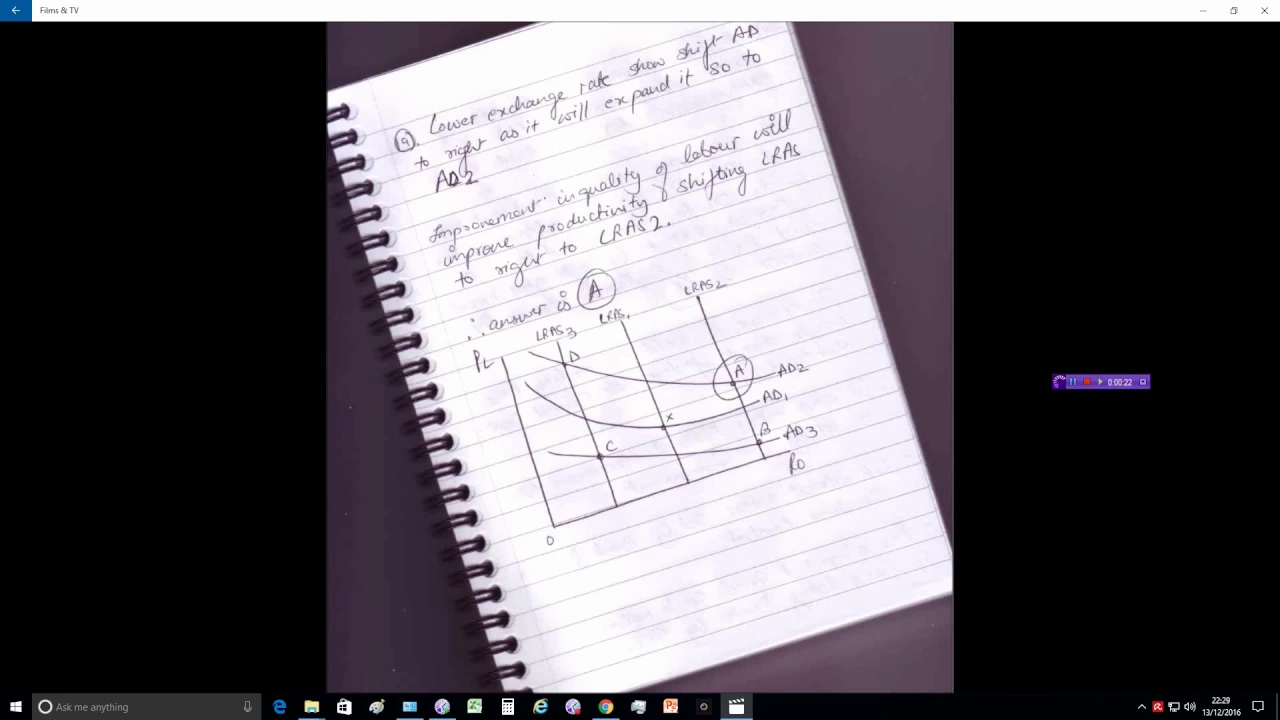 Films & TV
9. Lower exchange rate show shift AD
to right as it will expand it so to
AD2
Improvement in quality of labour will
improve productivity & shifting LRAS
to right to LRAS2.
∴ answer is A
LRAS3
LRAS1
LRAS2
PL
D
A
AD2
AD1
X
B
AD3
C
RO
O
0:00:22
Ask me anything
22:29
13/12/2016